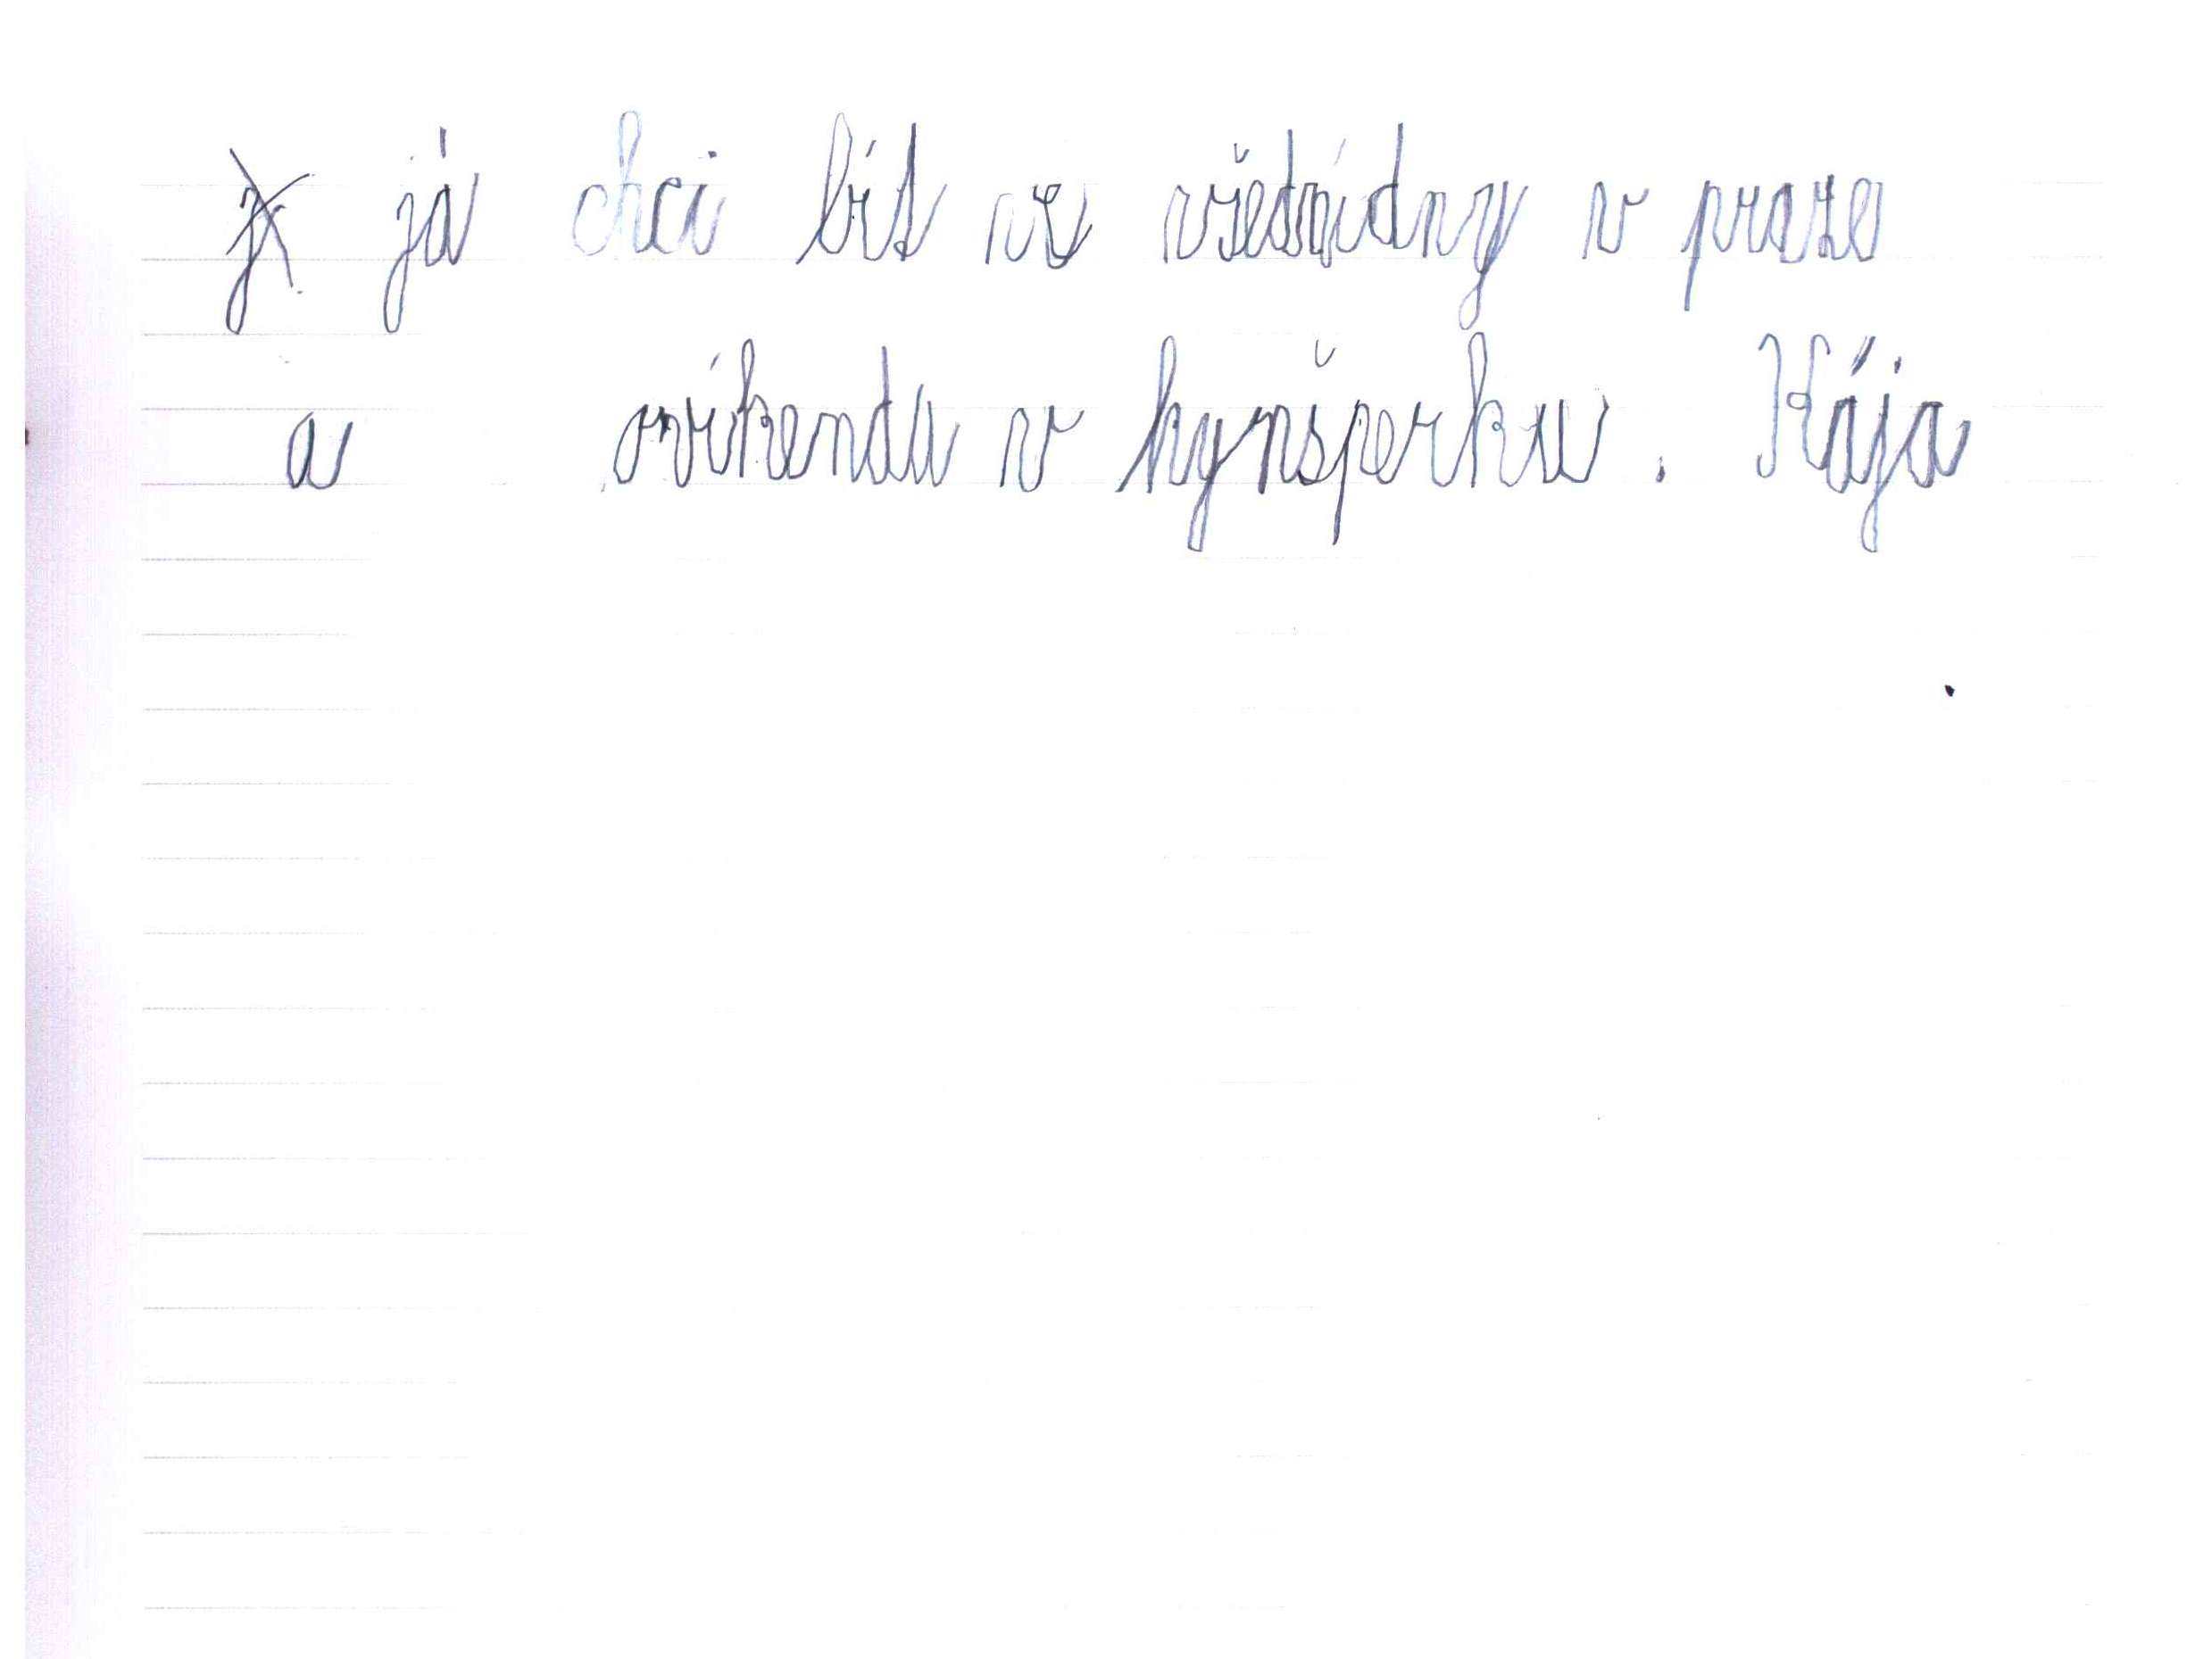 já chci bít ve všednídny v praze
a ovíkendu v hynšperku. Kája